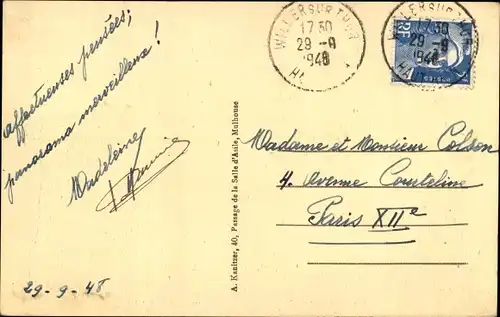 affectueuses pensées;
panorama merveilleux!
Madeleine
29-9-48
A. Kanitzer, 40, Passage de la Salle d'Asile, Mulhouse
WILLER SUR THUR
17 30
29 -9
1948
WILLER SUR THUR
17 30
29 -9
1948
Madame et Monsieur Colson
4. Avenue Courteline
Paris XIIe